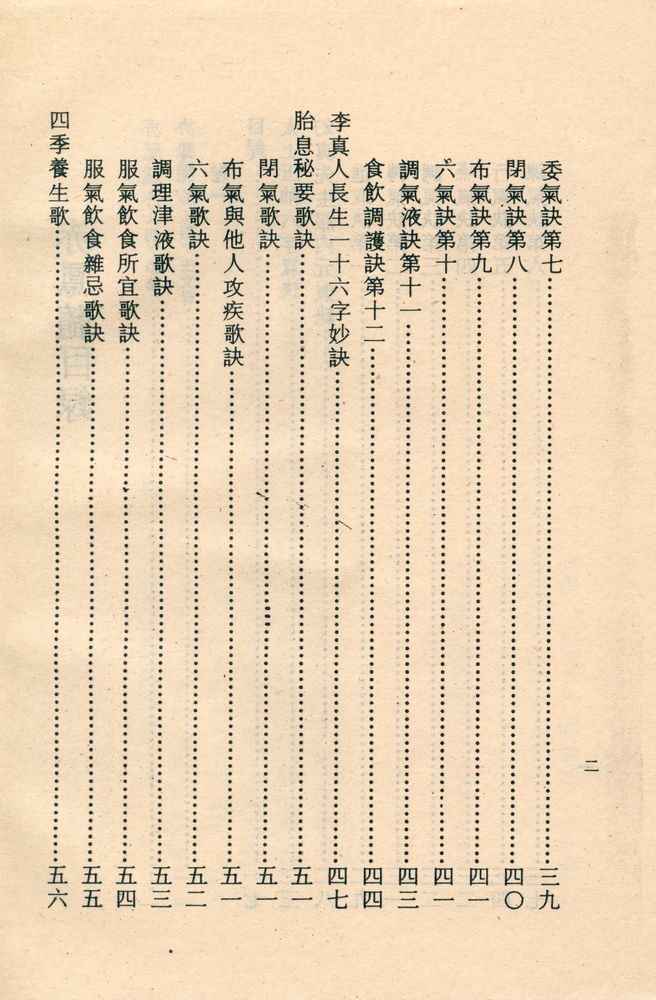 委氣訣第七……三九
閉氣訣第八……四〇
布氣訣第九……四一
六氣訣第十……四一
調氣液訣第十一……四三
食飲調護訣第十二……四四
李真人長生一十六字妙訣……四七
胎息秘要歌訣……五一
閉氣歌訣……五一
布氣與他人攻疾歌訣……五一
六氣歌訣……五二
調理津液歌訣……五三
服氣飲食所宜歌訣……五四
服氣飲食雜忌歌訣……五五
四季養生歌……五六
二